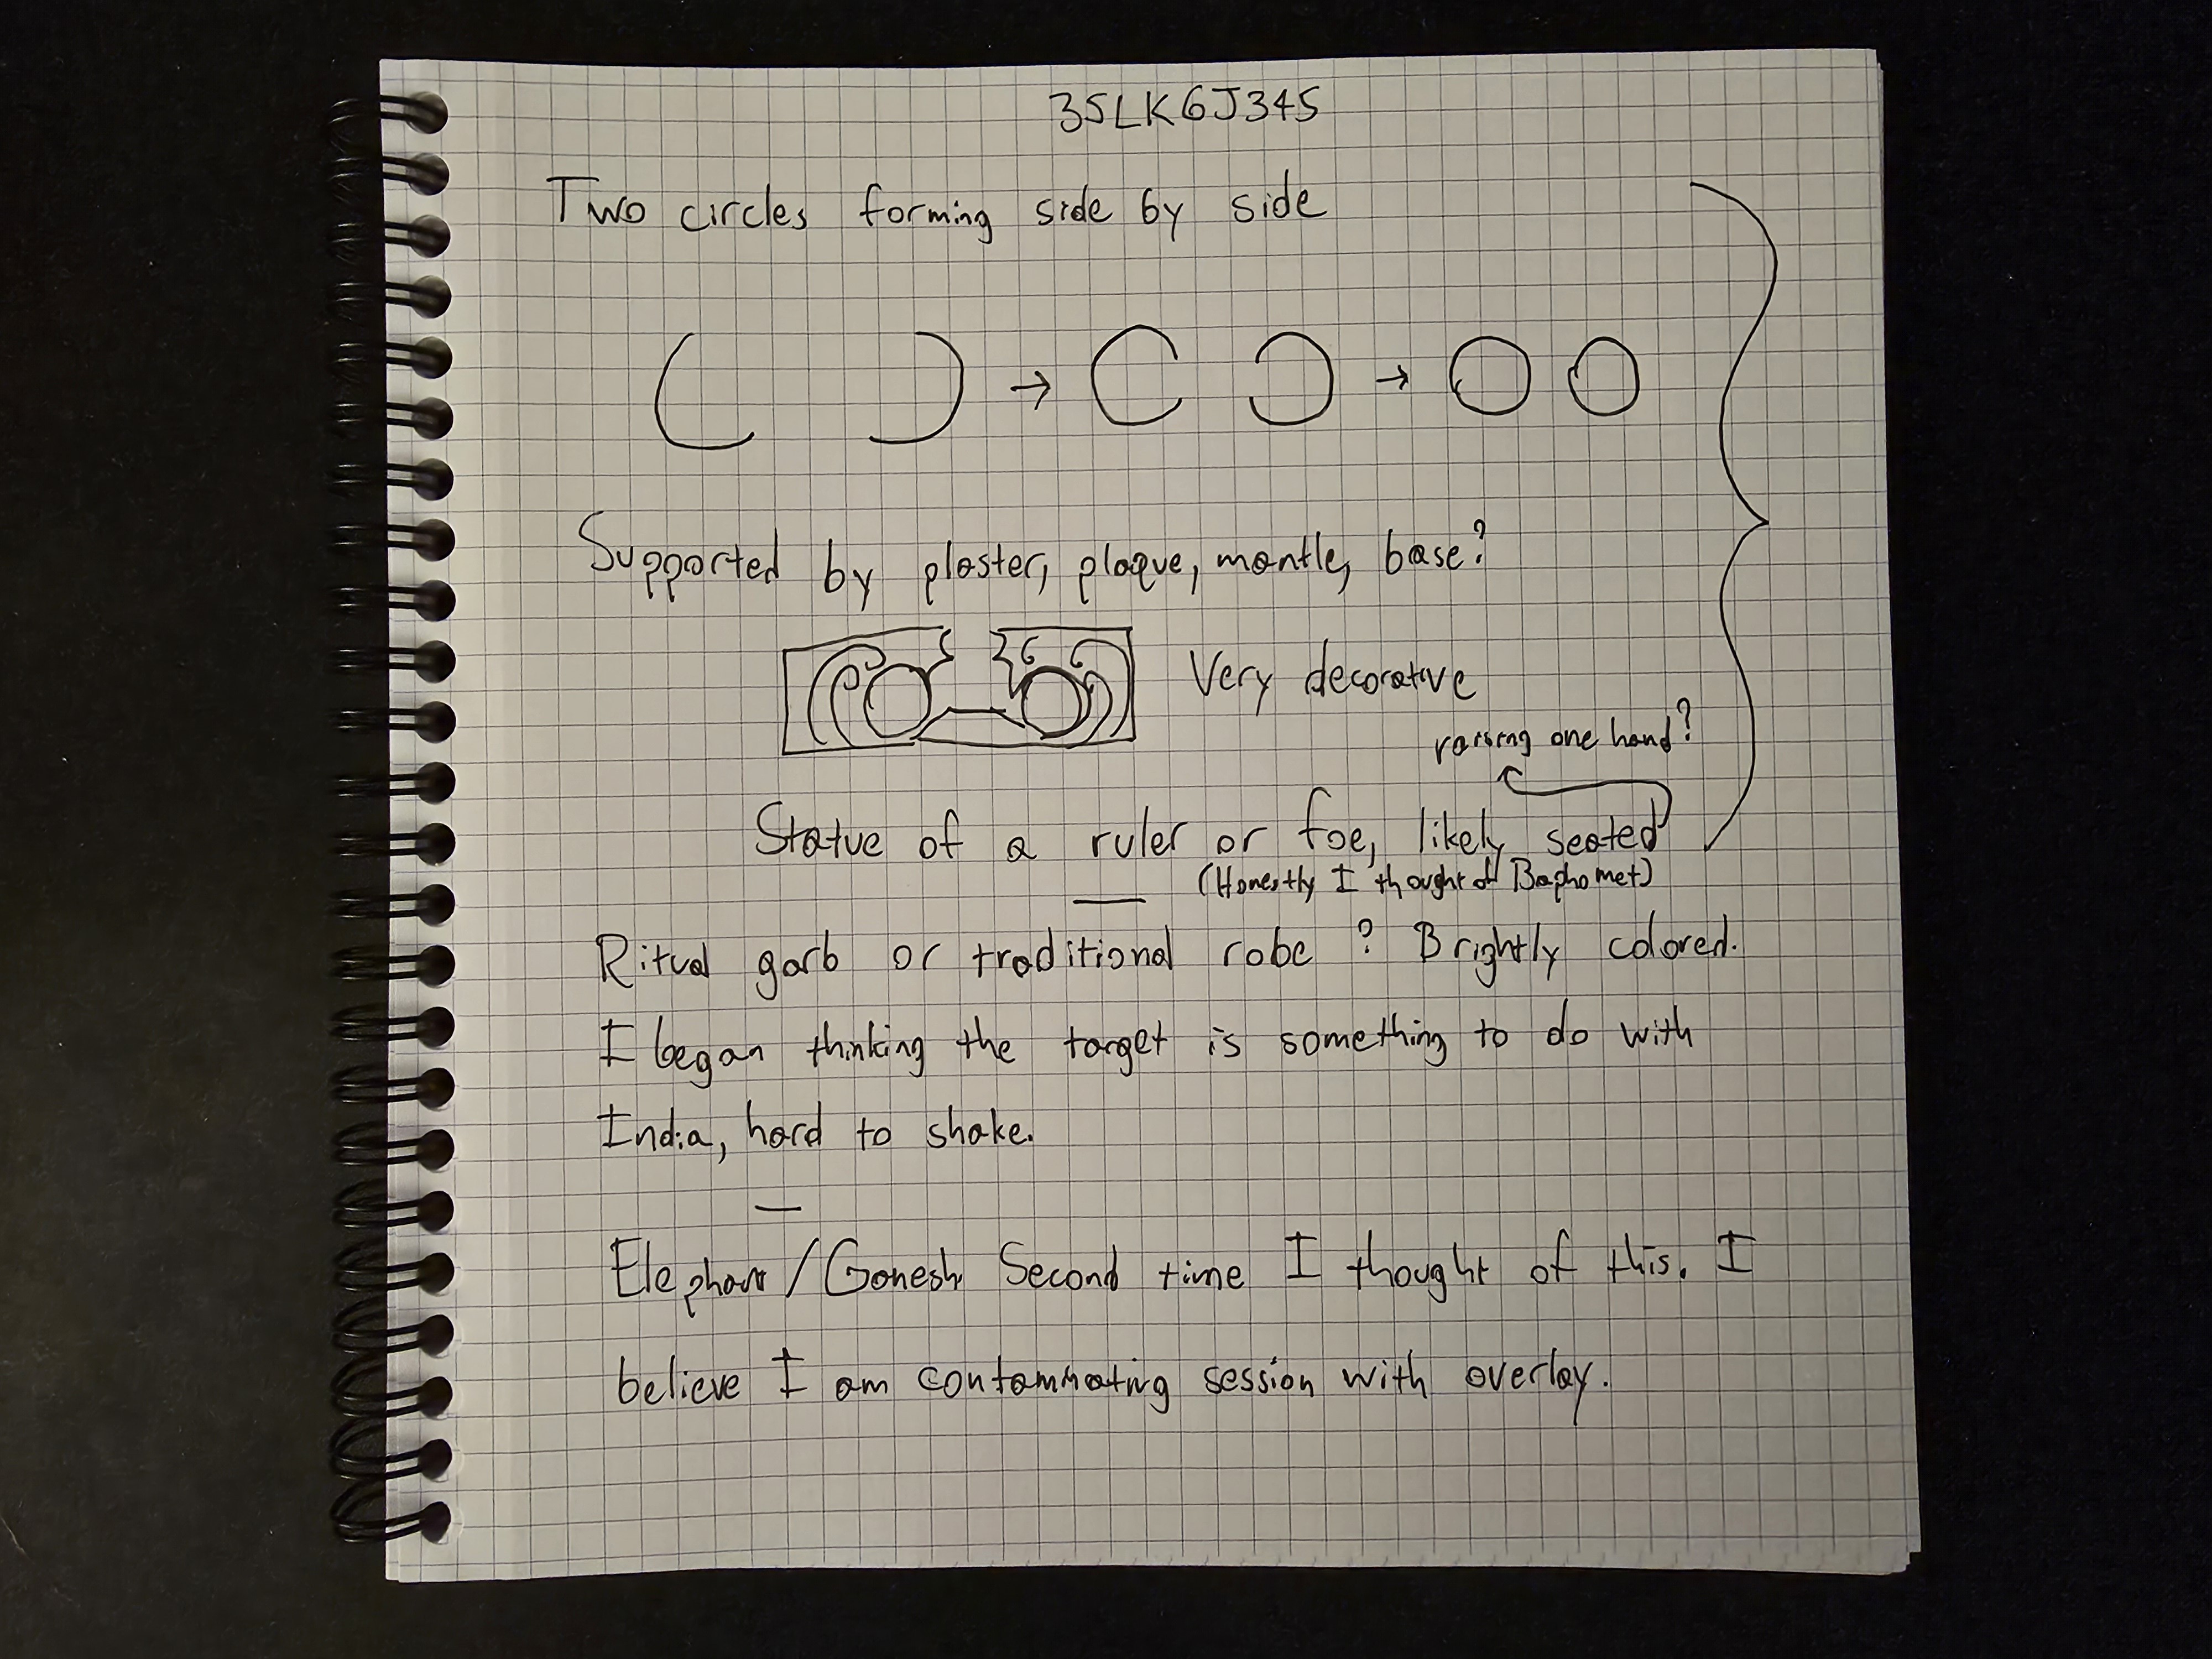 35LK6J345
Two circles forming side by side
Supported by plaster, plaque, mantle, base?
Very decorative
raising one hand?
Statue of a ruler or foe, likely seated
(Honestly I thought of Baphomet)
Ritual garb or traditional robe? Brightly colored.
I began thinking the target is something to do with
India, hard to shake.
Elephant/Ganesh Second time I thought of this. I
believe I am contaminating session with overlay.